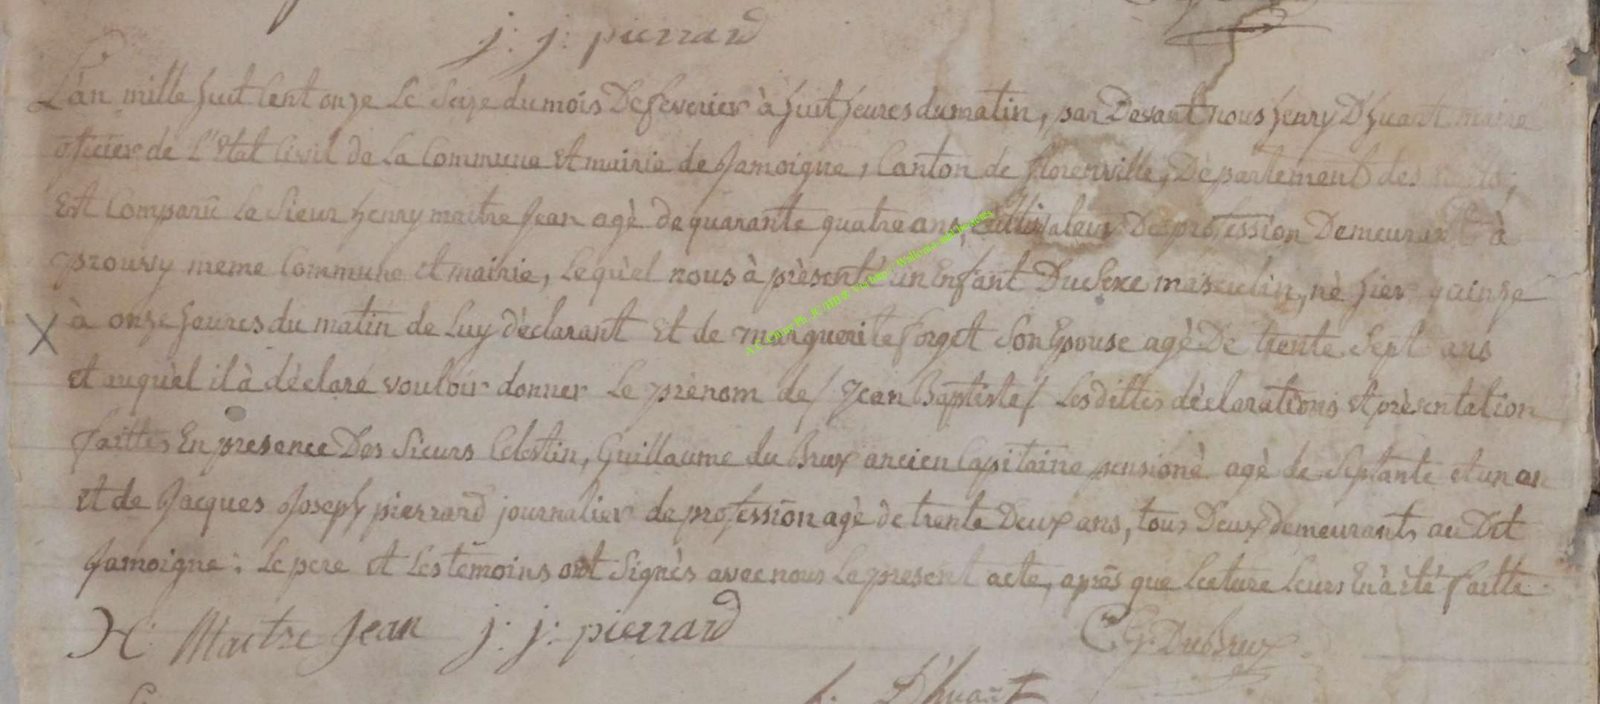 j: j: pierrard
L'an mille huit Cent onze Le Seize du mois De feverier à huit heures du matin, par Devant nous henry D'huart maire
officier de L'Etat Civil de La Commune Et mairie de Jamoigne, Canton de florenville, Departement des
Est Comparü Le Sieur henry maitre Jean agè de quarante quatre ans, Cultivateur De profession Demeurant à
prouvy meme Commune et mairie, Lequ'el nous à prèsenté un Enfant Du Sexe masculin, nè hier quinze
à onze heures du matin de Luy dèclarant Et de marguerite forget Son Epouse agè De trente Sept ans
et auqu'el il à dèclaré vouloir donner Le prènom de / Jean Baptiste / Les dittes dèclarations Et prèsentation
faittes En presence Des Sieurs Celestin, Guillaume du Brux ancien Capitaine pensionè agè de Septante et un an
Et de Jacques Joseph pierrard journalier de profession agè de trente Deux ans, tous Deux demeurants au Dit
Jamoigne: Le pere et Les tèmoins ont Signès avec nous Le present acte, aprés que Lecture Leurs En à èté faitte.
H: Maitre Jean j: j: pierrard C G: DuBrux
h: D'huart